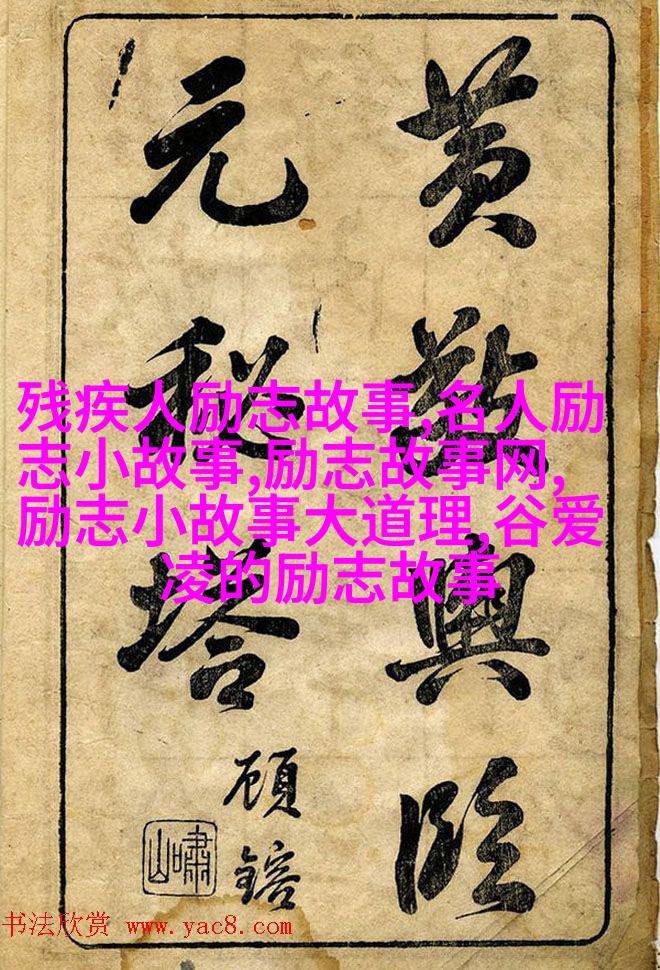 黄敬輿臨
元秘塔
顧鎔
嘯山
残疾人励志故事,名人励
志小故事,励志故事网,
励志小故事大道理,谷爱
凌的励志故事
书法欣赏 www.yac8.com